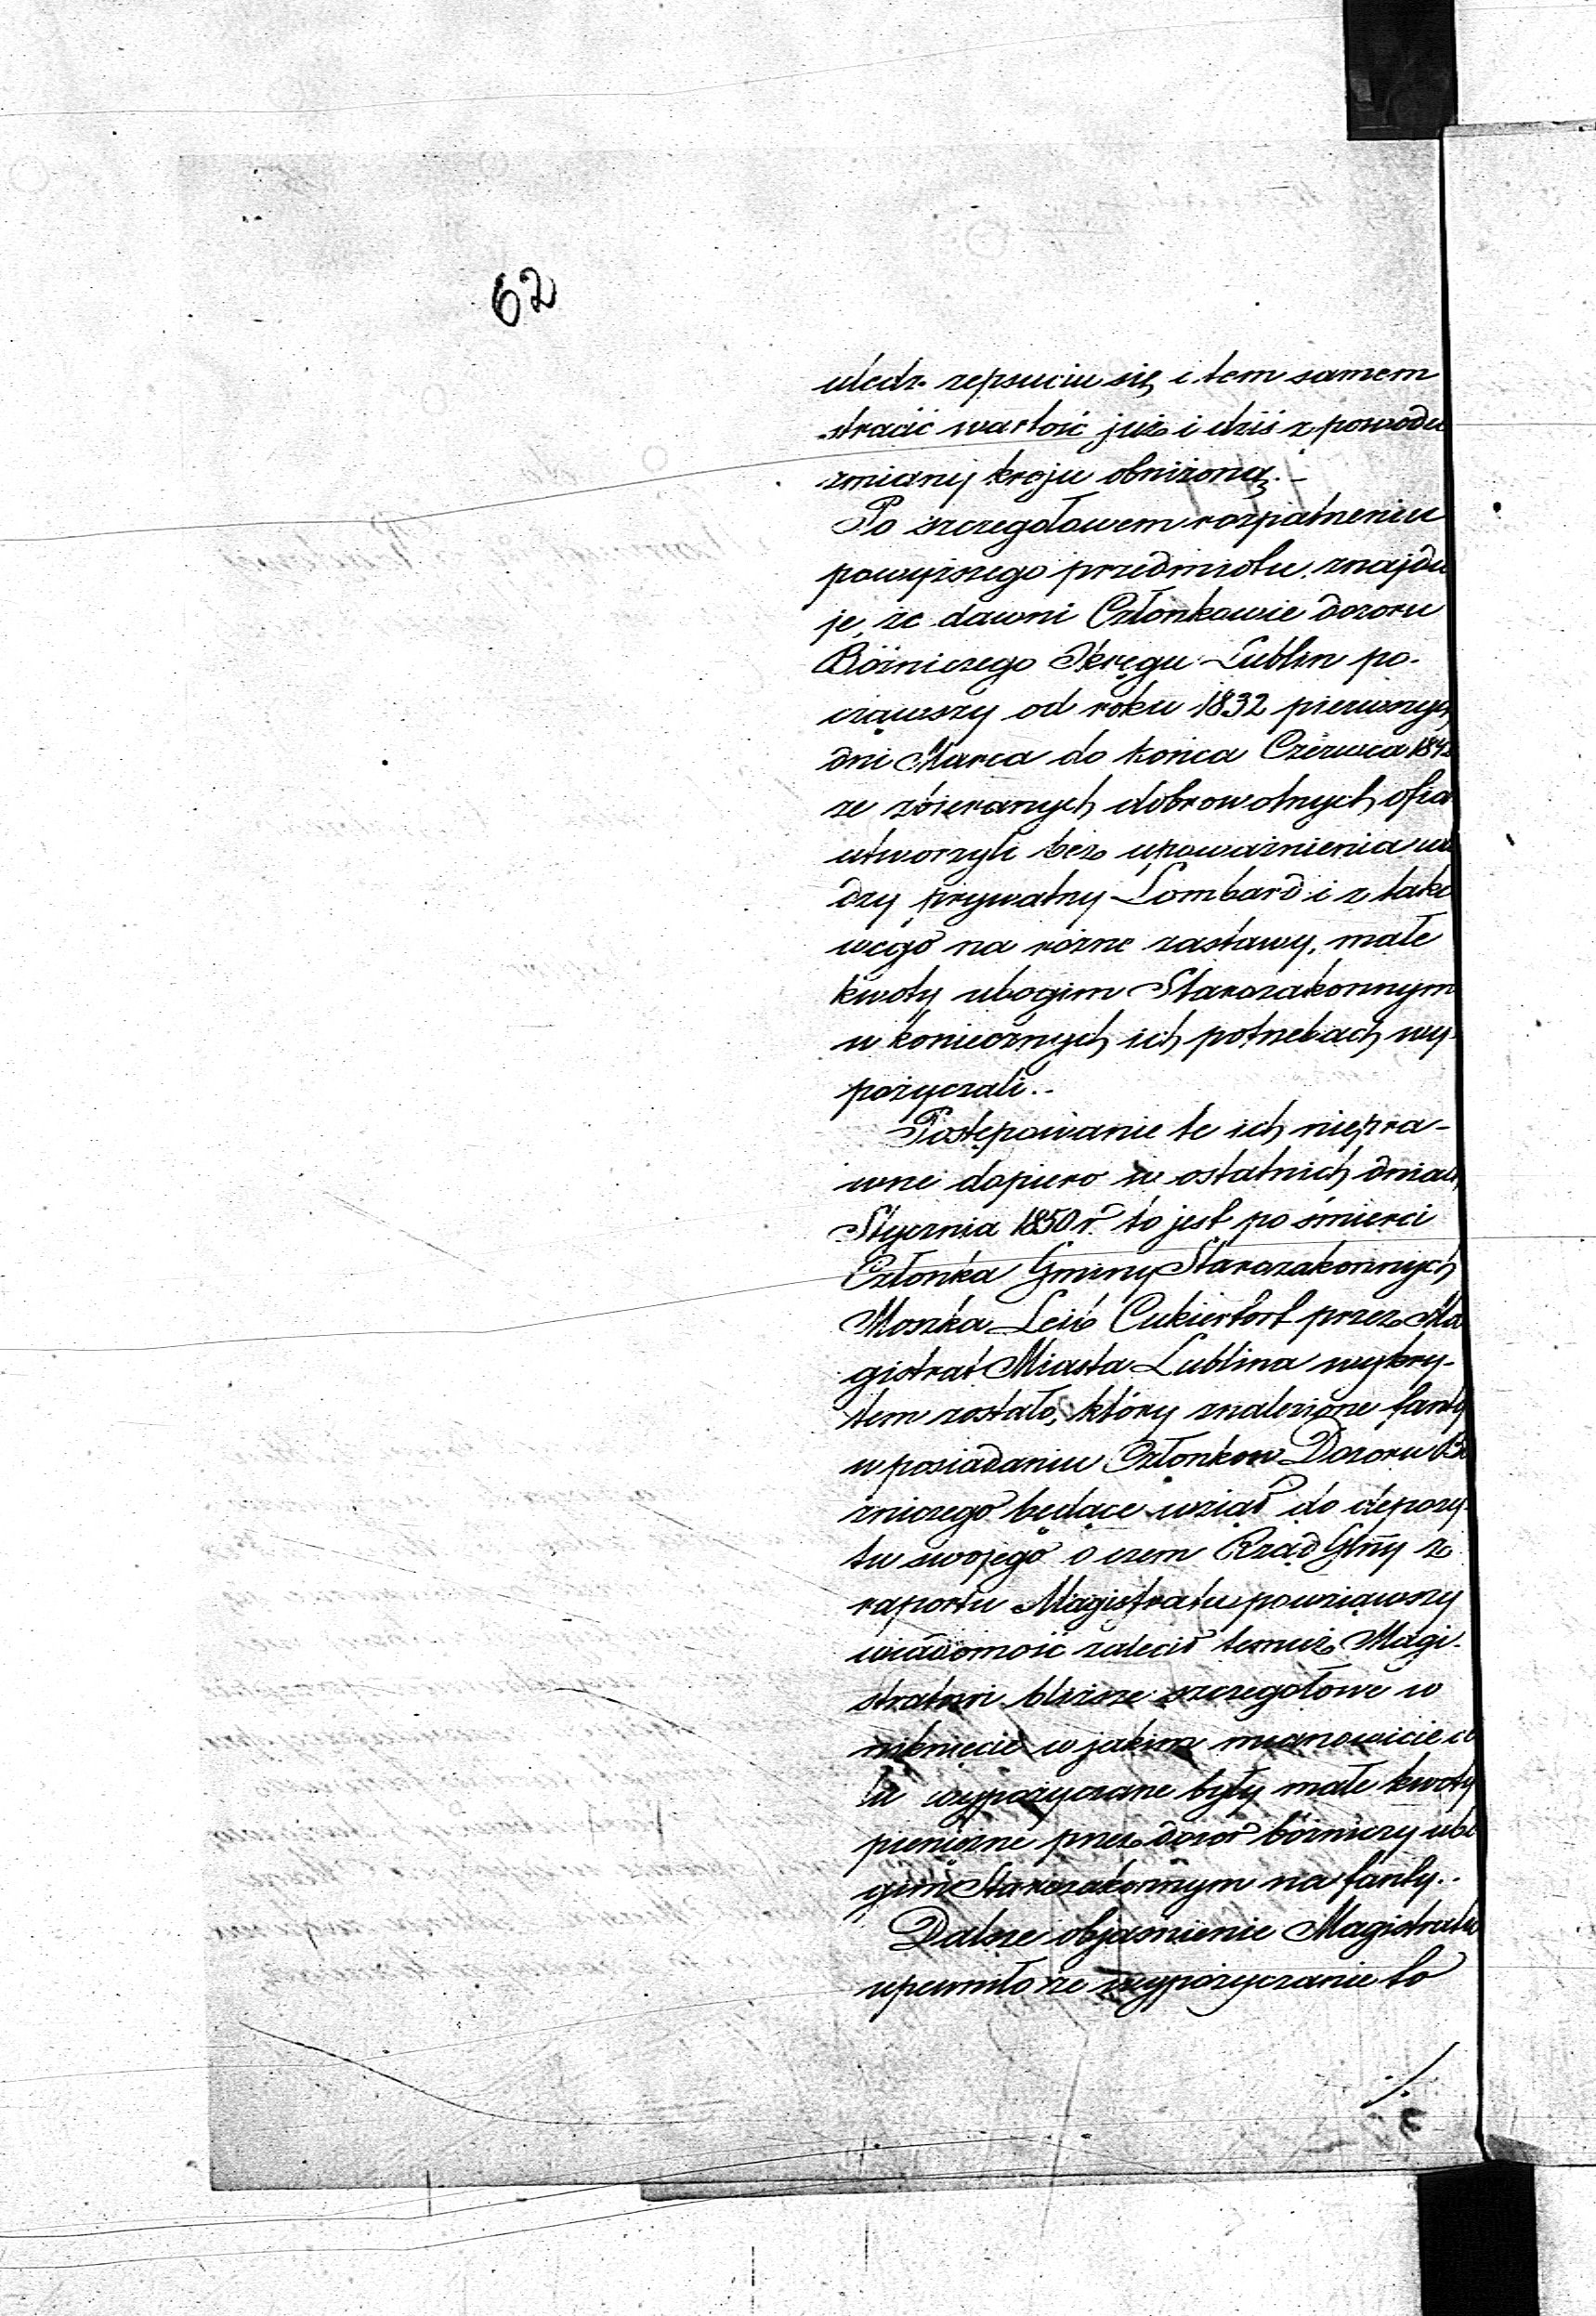 62
uledz zepsuciu się, i tem samem
stracić wartość już i dziś z powodu
zmiany kroju obniżoną.-
Po szczegołowem rozpatrzeniu
powyższego przedmiotu, znajdu
je, że dawni Członkowie dozoru
Bóżniczego Okręgu Lublin po-
cząwszy od roku 1832 pierwszych
dni Marca do końca Czerwca 184
ze zbieranych dobrowolnych ofia
utworzyli bez upoważnienia wła
dzy prywatny Lombard i z tako
wego na różne zastawy, małe
kwoty ubogim Starozakonnym
w koniecznych ich potrzebach wy-
pożyczali.-
Postępowanie te ich niepra-
wne dopiero w ostatnich dniach
Stycznia 1850 r. to jest po śmierci
Członka Gminy Starozakonnych
Moszka Leib Cukiertort przez Ma
gistrat Miasta Lublina wykry-
tem zostało, który znalezione fanty
w posiadaniu Członkow Dozoru Bó
żniczego będące wziął do depozy-
tu swojego o czem Rząd Glny z
raportu Magistratu powziąwszy
wiadomość zalecił temuż Magi-
stratowi bliższe szczegołowe w
niknięcie w jakim mianowicie ce
lu wypożyczane były małe kwoty
pieniężne przez dozór bóżniczy ubo
gim Starozakonnym na fanty.-
Dalsze objaśnienie Magistratu
upewniło że wypożyczanie to
./.